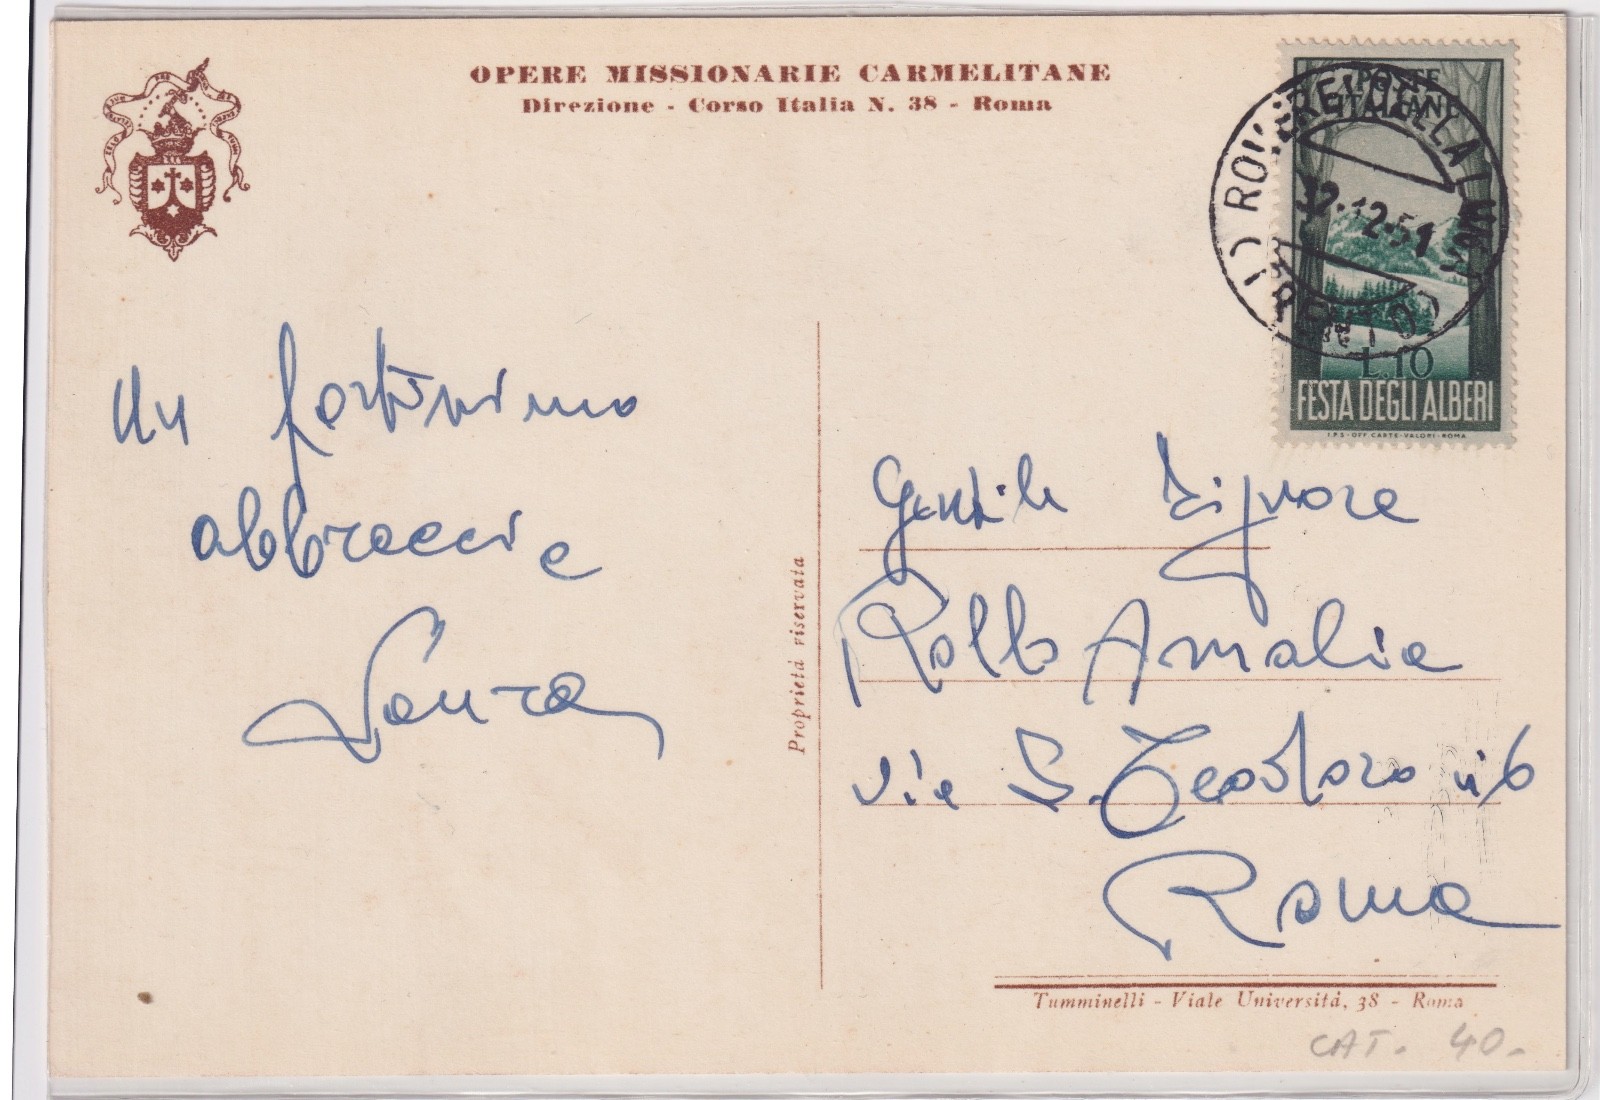 OPERE MISSIONARIE CARMELITANE
Direzione - Corso Italia N. 38 - Roma
POSTE
ITALIANE
ROVERE DELLA LUNA
12-51
(TRENTO)
L.10
FESTA DEGLI ALBERI
I.P.S-OFF. CARTE-VALORI-ROMA
un fortissimo
abbraccio
Laura
Proprietà riservata
Gentile Signora
Rollo Amalia
via S. Teodoro n° 6
Roma
Tumminelli - Viale Università, 38 - Roma
CAT. 40.-